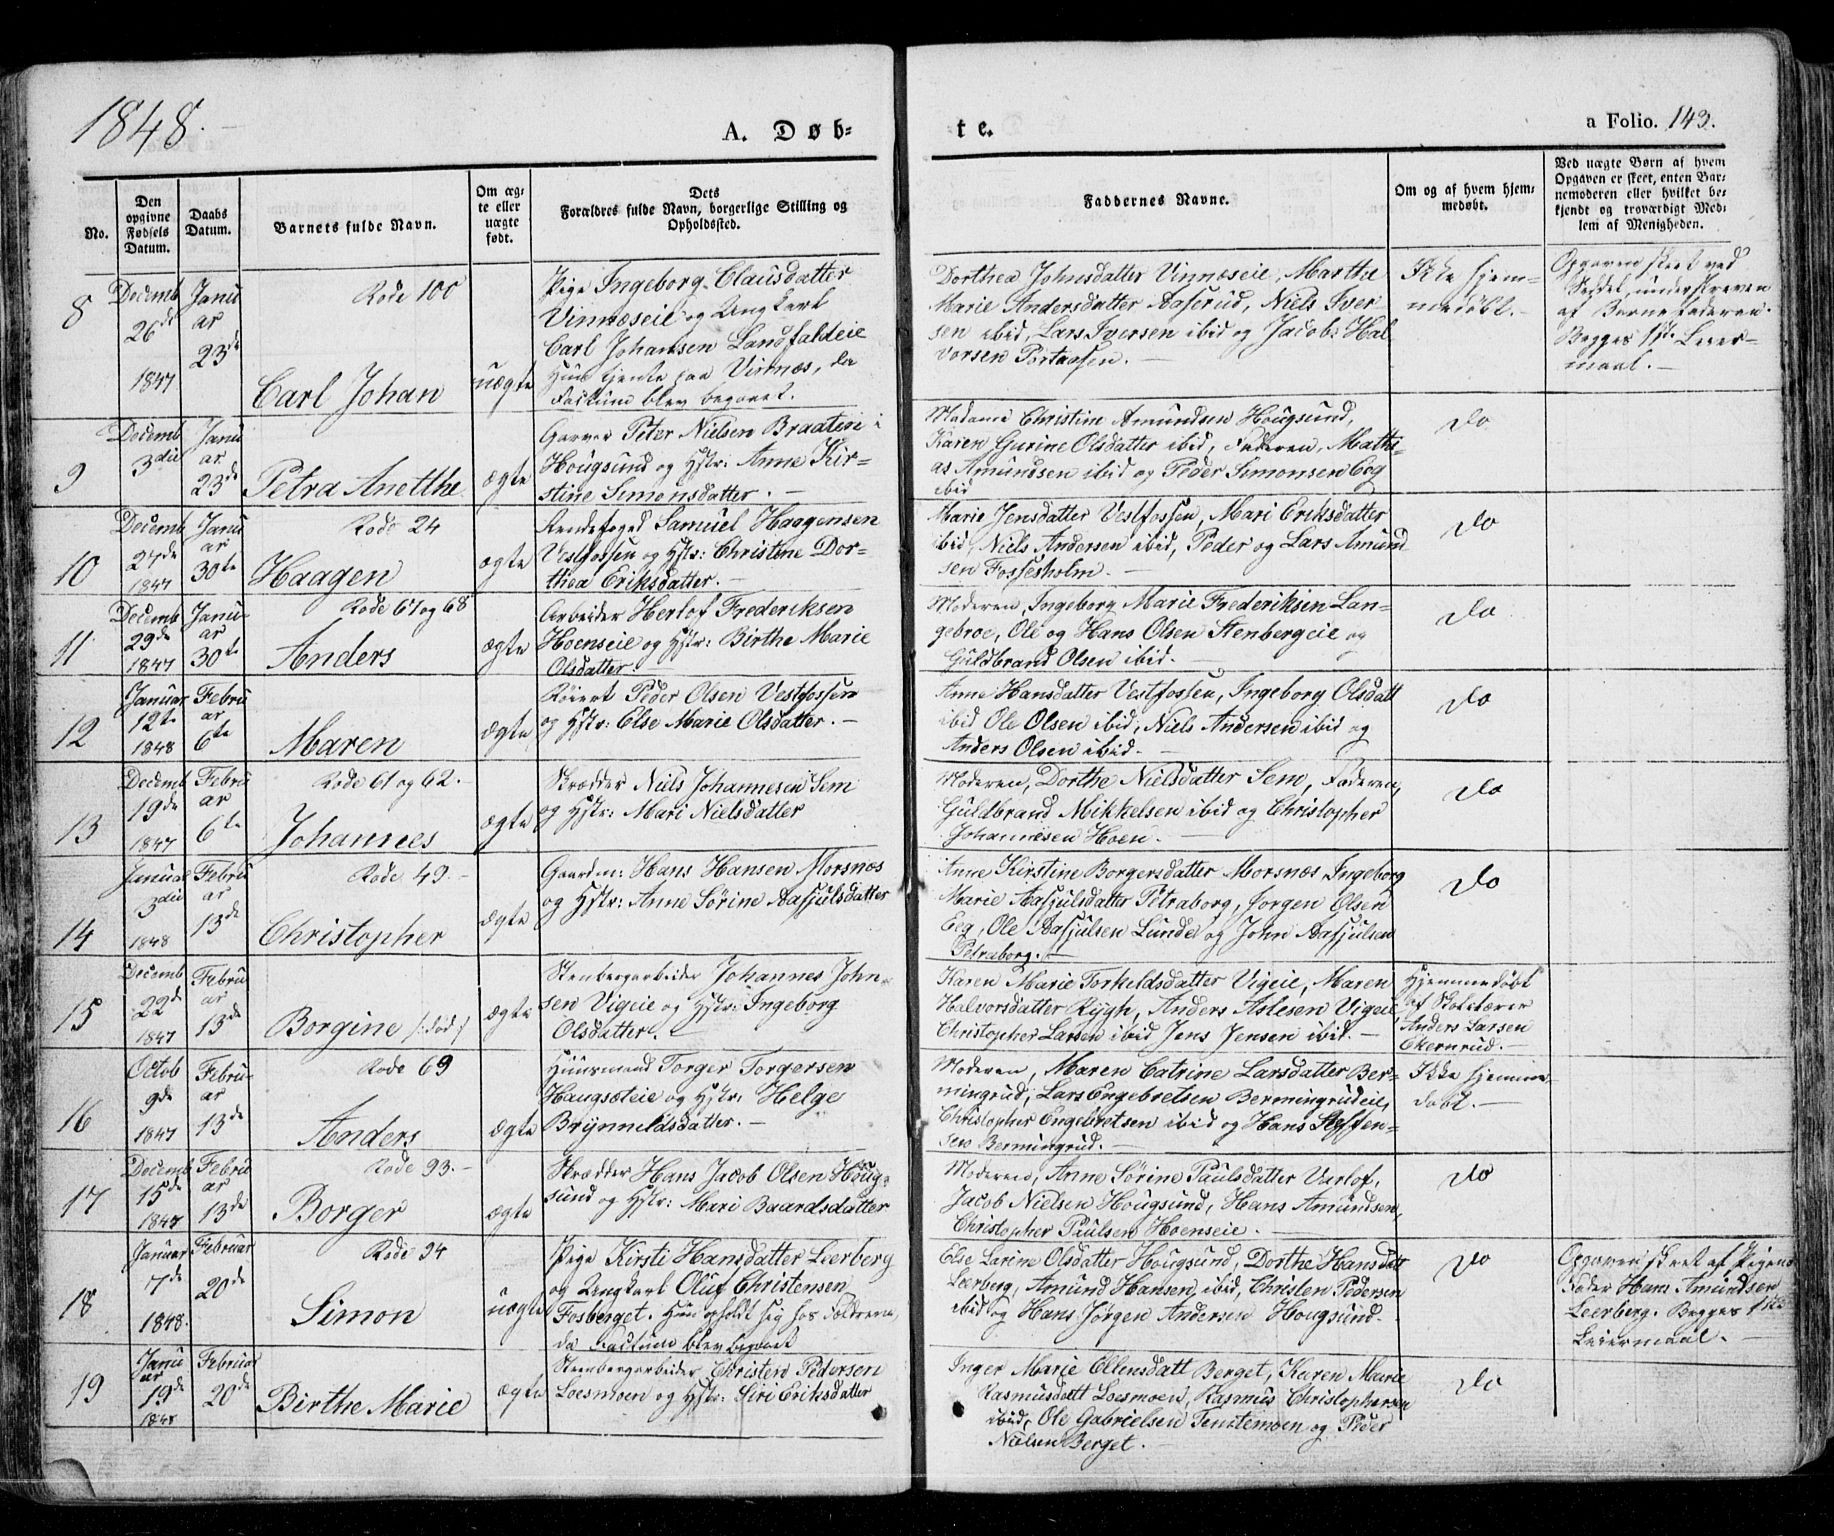 1848.
A. Døb-
te.
a Folio. 143.
No.
Den
opgivne
Fødsels
Datum.
Daabs
Datum.
Barnets fulde Navn.
Om æg-
te eller
uægte
født.
Dets
Forældres fulde Navn, borgerlige Stilling og
Opholdssted.
Faddernes Navne.
Om og af hvem hjem-
medøbt.
Ved uægte Børn af hvem
Opgaven er skeet, enten Bar-
nemoderen eller hvilket be-
kjendt og troværdigt Med-
lem af Menigheden.
8
Decemb
26de
1847
Janu
ar
23de
Rode 100
Carl Johan
uægte
Pige Ingeborg Clausdatter
Vinnæseie og Ungkarl
Carl Johansen Landfaldeie
Hun tjente paa Vinnæs, da
Factum blev begaaet.
Dorthea Johnsdatter Vinnæseie, Marthe
Marie Andersdatter Aaserud, Niels Iver
sen ibid, Lars Iversen ibid og Jacob Hal
vorsen Portaasen.
Ikke hjem-
medøbt.
Opgaven skeet ved
Seddel, underskreven
af Barnefaderen.
Begges 1ste Leier-
maal.
9
Decemb
3die
Janu
ar
23de
Petra Anetthe
ægte
Garver Peter Nielsen Braaten i
Hougsund og Hstr: Anne Kir-
stine Simonsdatter.
Madame Christin Amundsen Hougsund,
Karen Gurine Olsdatter ibid, Faderen, Mathi-
as Amundsen ibid og Peder Simonsen Eeg
ibid
Do
10
Decemb
27de
1847
Janu
ar
30te
Rode 24
Haagen
ægte
Lendsfoged Samuel Haagensen
Vestfossen og Hstr: Christine Dor-
thea Eriksdatter.
Marie Jensdatter Vestfossen, Mari Eriksdatter
ibid, Niels Andersen ibid, Peder og Lars Amund
sen Fossesholm.
Do
11
Decemb
29de
1847
Janu-
ar
30te
Rode 67 og 68
Anders
ægte
Arbeider Herlof Frederiksen
Hoenseie og Hstr: Birthe Marie
Olsdatter
Moderen, Ingeborg Marie Frederiksen Lan-
gebroe, Ole og Hans Olsen Stenbergeie og
Guldbrand Olsen ibid.
Do
12
Januar
12te
1848
Febru
ar
6te
Maren
ægte
Peder Olsen Vestfossen
og Hstr: Else Marie Olsdatter.
Anne Hansdatter Vestfossen, Ingeborg Olsdatt
ibid Ole Olsen ibid, Niels Andersen ibid og
Anders Olsen ibid.
Do
13
Decemb
19de
1847
Febru
ar
6te
Rode 61 og 62.
Johannes
ægte
Skrædder Niels Johannesen Sem
og Hstr: Mari Nielsdatter
Moderen, Dorthe Nielsdatter Sem, Faderen,
Guldbrand Mikkelsen ibid og Christopher
Johannesen Hoen.
Do
14
Januar
3die
1848
Febru
ar
13de
Rode 49.
Christopher
ægte
Gaardm: Hans Hansen Morsnæs
og Hstr: Anne Sørine Aasjulsdatter
Anne Kirstine Borgersdatter Morsnæs Ingeborg
Marie Aasjulsdatter Petraborg, Jørgen Olsen
Eeg, Ole Aasjulsen Lunde og John Aasjulsen
Petraborg.
Do
15
Decemb
22de
1847
Febru
ar
13de
Borgine /: død :/
ægte
Stenbergarbeider Johannes John-
sen Vigeie og Hstr: Ingeborg
Olsdatter.
Karen Marie Torkeldsdatter Vigeie, Maren
Halvorsdatter Rygh, Anders Aslesen Vigeie,
Christopher Larsen ibid Jens Jensen ibid.
Hjemmedøbt
af
Anders Larsen
Ekernrud.
16
Octob
9de
1847
Febru-
ar
13de
Rode 69
Anders
ægte
Huusmand Torger Torgersen
Haugsæteie og Hstr: Helge
Brynnildsdatter.
Moderen, Maren Catrine Larsdatter Ber-
mingrud, Lars Engebretsen Bermingrudeie,
Christopher Engebretsen ibid og Hans Steffen-
sen Bermingrud.
Ikke hjemme
døbt.
17
Decemb
15de
1847
Febru
ar
13de
Rode 93.
Borger
ægte
Skrædder Hans Jacob Olsen Houg-
sund og Hstr: Mari Baardsdatter
Moderen, Anne Sørine Paulsdatter Varlof,
Jacob Nielsen Hougsund, Hans Amundsen,
Christopher Paulsen Hoenseie.
Do
18
Januar
7de
1848.
Februar
20de
Rode 94
Simon
uægte
Pige Kirsti Hansdatter Leerberg
og Ungkarl Oluf Christensen
Fosberget. Hun opholdt sig hos Fældrene,
da Factum blev begaaet
Else Larine Olsdatter Hougsund, Dorthe Hansdatt
Leerberg, Amund Hansen, ibid, Christen Pedersen
ibid og Hans Jørgen Andersen Hougsund.
Do
Opgaven skeet af Pigens
Fader Hans Amundsen
Leerberg. Begges 1ste
Leiermaal.
19
Janu
ar
19de
1848
Februar
20de
Birthe Marie
ægte
Steenbergarbeider Christen Pedersen
Loesmoen og Hstr: Siri Eriksdatter
Inger Marie Ellensdatt Berget, Karen Marie
Rasmusdatt Loesmoen, Rasmus Christophersen
ibid, Ole Gabrielsen Tenstemoen og Peder
Nielsen Berget.
Do